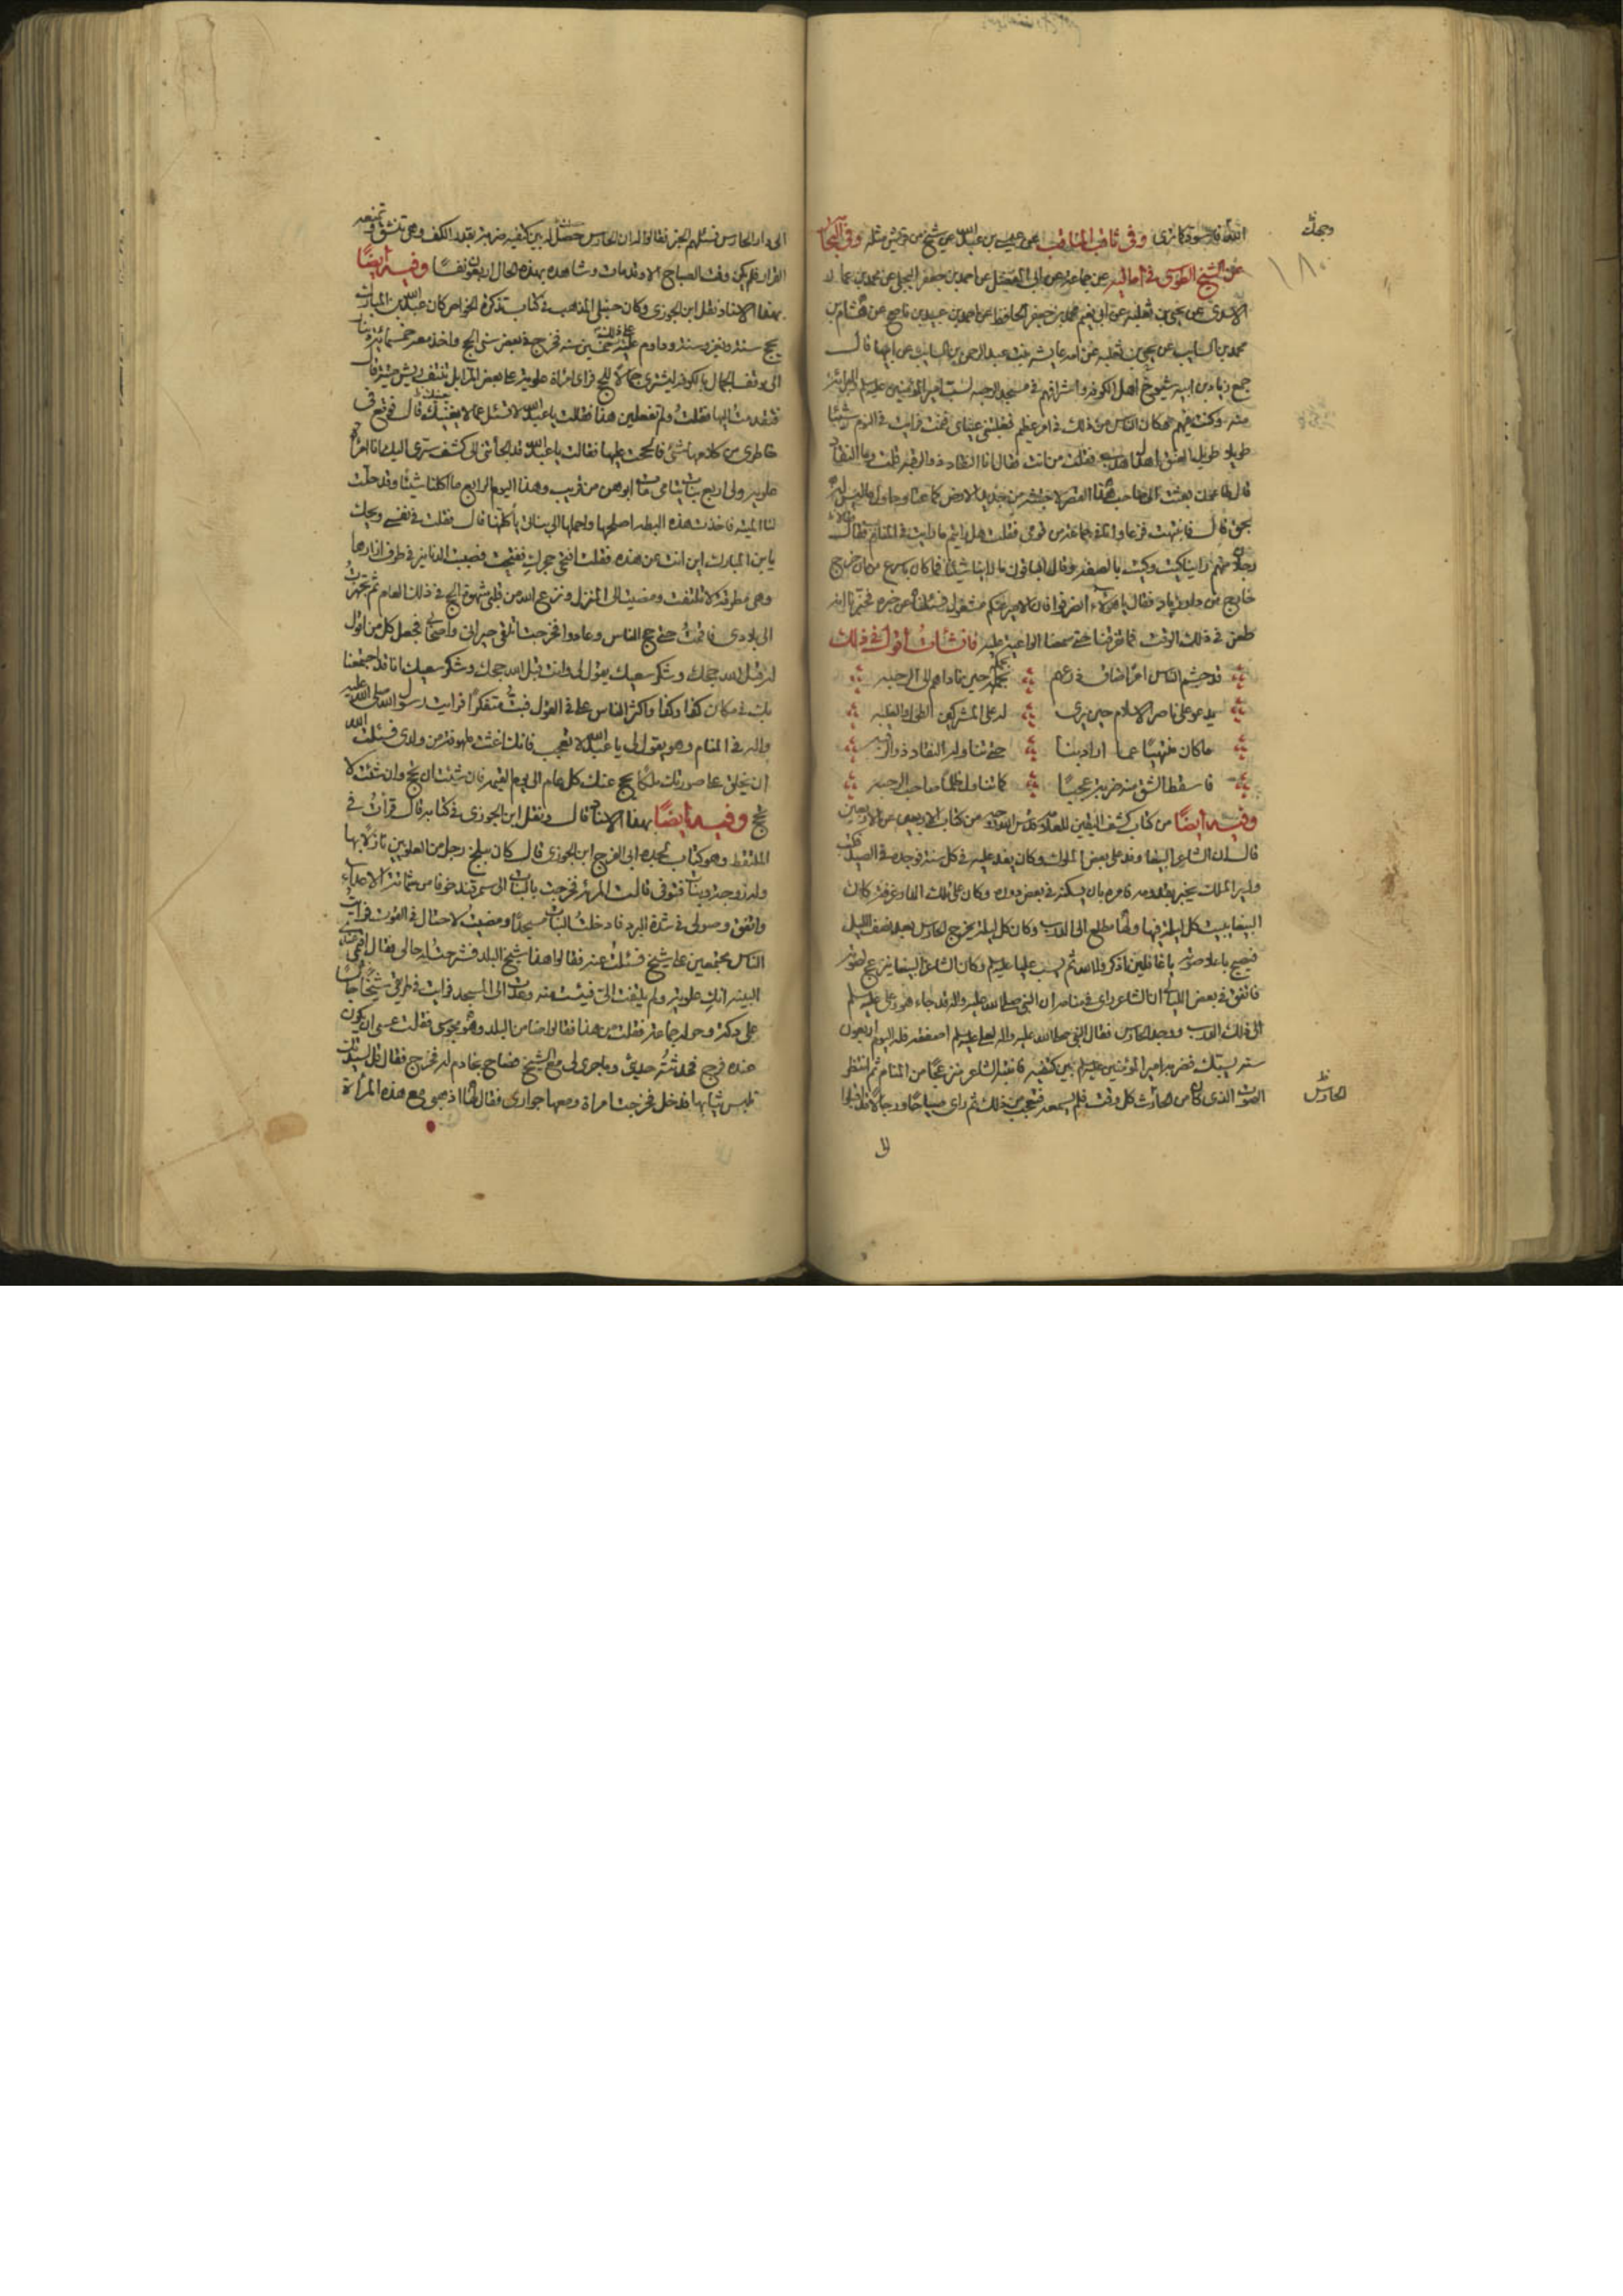 الله فاسود كما ترى وفي ثاقب المناقب عن عبد الله عن شيخ من قريش مثله وفي البحار
عن الشيخ الطوسي في أماليه عن جماعة عن أبي المفضل عن احمد بن جعفر البجلي عن محمد بن عمار
الاسدي عن يحيى بن ثعلبة عن أبي نعيم محمد بن جعفر الحافظ عن احمد بن عبيد بن ناصح عن هشام بن
محمد بن السايب عن يحيى بن ثعلبه عن امه عايشه بنت عبد الرحمن بن السايب عن ابيها قال
جمع زياد بن ابيه شيوخ اهل الكوفه واشرافهم في مسجد الرحبه لسب امير المؤمنين عليه السلم والبرائة
منه وكنت فيهم فكان الناس من ذلك في امر عظيم فغلبتني عيناي فنمت فرايت في النوم شيئا
طويلا طويل العنق اهدل اهدب فقلت من انت فقال انا النقاد ذو الرقبه قلت وما النقاد
قال طاعون بعثت الى صاحب هذا القصر لاجتثه من جديد الارض كما عتا وحاول ما ليس له
بحق قال فانتبهت فزعا وانا في جماعة من قومي فقلت هل رايتم ما رايت في المنام فقال
رجلان منهم راينا كيت وكيت بالصفه وقال الباقون ما راينا شيئا فما كان باسرع من ان خرج
خارج من دار زياد فقال يا هؤلاء انصرفوا فان الامير عنكم مشغول فسئلناه عن خبره فخبرنا انه
طعن في ذلك الوقت فما تفرقنا حتى سمعنا الواعية عليه فانشأت أقول في ذلك
قد جشم الناس امرا ضاق ذرعهم بحملهم حين ناداهم الى الرحبه
يدعو على ناصر الاسلام حين يرى له على المشركين الطول والغلبه
ما كان منتهيا عما اراد بنا حتى تناوله النقاد ذو الرقبه
فاسقط الشق منه ضربة عجبا كما تناول ظلما صاحب الرحبه
وفيه أيضا من كتاب كشف اليقين للعلامة من كتاب الاربعين عن الاربعين
قال ان الشاعر الببغا وفد على بعض الملوك وكان يفد عليه في كل سنة فوجده في الصيد فكتب
وزير الملك يخبر بقدومه فامره بان يسكنه في بعض دوره وكان على تلك الدار غرفة كان
الببغا يبيت كل ليلة فيها ولها مطلع الى الدرب وكان كل ليلة يخرج الحارس بعد نصف الليل
فيصيح باعلا صوته يا غافلين اذكروا الله ثم يسب عليا عليه السلم وكان الشاعر الببغا ينزعج لصوته
فاتفق في بعض الليالي ان الشاعر راى في منامه ان النبي صلى الله عليه واله قد جاء هو وعلي عليه السلم
الى ذلك الدرب ووجد الحارس فقال النبي صلى الله عليه واله لعلي عليه السلم اصفعه فله اليوم اربعون
سنه يسبك فضربه امير المؤمنين عليه السلم بين كتفيه فانتبه الشاعر منزعجا من المنام ثم انتظر
الصوت الذي كان من الحارث كل وقت فلم يسمعه فتعجب من ذلك ثم راى صياحا ورجالا قد اقبلوا
الحارس ظ
الى
الى دار الحارس فسئلهم الخبر فقالوا له ان الحارس حصل له بين كتفيه ضربة بقدر الكف وهي تنشق وتمنعه
القرار فلم يكن وقت الصباح الا وقد مات وشاهده بهذه الحال اربعون نفسا وفيه أيضا
بهذا الاسناد نقل ابن الجوزي وكان حنبلي المذهب في كتاب تذكرة الخواص كان عبد الله بن المبارك
يحج سنة ويغزو سنة وداوم على ذلك خمسين سنه فخرج في بعض سني الحج واخذ معه خمسمائة دينار
الى موقف الجمال بالكوفه ليشتري جمالا للحج فراى امراة علوية على بعض المزابل تنتف ريش بطة ميتة قال
فتقدمت اليها فقلت ولم تفعلين هذا فقالت يا عبد الله لا تسئل عما لا يعنيك قال فوقع في
خاطري من كلامها شئ فالححت عليها فقالت يا عبد الله قد الجأتني الى كشف سري اليك انا امراة
علوية ولي اربع بنات يتامى مات ابوهن من قريب وهذا اليوم الرابع ما اكلنا شيئا وقد حلت
لنا الميتة فاخذت هذه البطه اصلحها واحملها الى بناتي يأكلنها قال فقلت في نفسي ويحك
يا بن المبارك اين انت من هذه فقلت افتحي حجرك ففتحت فصببت الدنانير في طرف ازارها
وهي مطرقة لا تلتفت ومضيت الى المنزل ونزع الله من قلبي شهوة الحج في ذلك العام ثم تجهزت
الى بلادي فاقمت حتى حج الناس وعادوا فخرجت اتلقى جيراني واصحابي فجعل كل من اقول
له قبل الله حجك وشكر سعيك يقول لي وانت قبل الله حجك وشكر سعيك انا قد اجتمعنا
بك في مكان كذا وكذا واكثر الناس علي في القول فبت متفكرا فرايت رسول الله صلى الله عليه
واله في المنام وهو يقول لي يا عبد الله لا تعجب فانك اغثت ملهوفة من ولدي فسئلت الله
ان يخلق على صورتك ملكا يحج عنك كل عام الى يوم القيمه فان شئت ان تحج وان شئت لا
تحج وفيه أيضا بهذا الاسناد قال ونقل ابن الجوزي في كتابه قال قرأت في
الملتقط وهو كتاب لجده ابي الفرج ابن الجوزي قال كان ببلخ رجل من العلويين نازلا بها
وله زوجة وبنات فتوفى قالت المرئة فخرجت بالبنات الى سمرقند خوفا من شماتة الاعداء
واتفق وصولي في شدة البرد فادخلت البنات مسجدا ومضيت لاحتال في القوت فرايت
الناس مجتمعين على شيخ فسئلت عنه فقالوا هذا شيخ البلد فشرحت له حالي فقال اقيمي عندي
البينه انك علوية ولم يلتفت الي فيئست منه وعدت الى المسجد فرايت في طريقي شيخا جالسا
على دكة وحوله جماعة فقلت من هذا فقالوا ضامن البلد وهو مجوسي فقلت عسى ان يكون
عنده فرج فحدثته حديثي وما جرى لي مع الشيخ فصاح بخادم له فخرج فقال قل لسيدتك
تلبس ثيابها فدخل فخرجت امراة ومعها جواري فقال لها اذهبي مع هذه المرأة